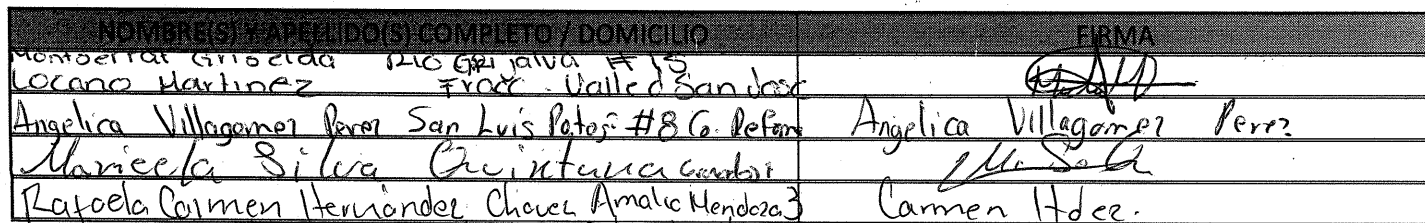 NOMBRE(S) Y APELLIDO(S) COMPLETO / DOMICILIO FIRMA
Montserrat Griselda Rio Grijalva # 15
Locano Martinez Fracc. Valle d San Jose
Angelica Villagomez Perez San Luis Potosi #8 Co. Reform Angelica Villagomez Perez
Maricela Silva Quintana
Rafaela Carmen Hernández Chavez Amalia Mendoza 3 Carmen Hdez.